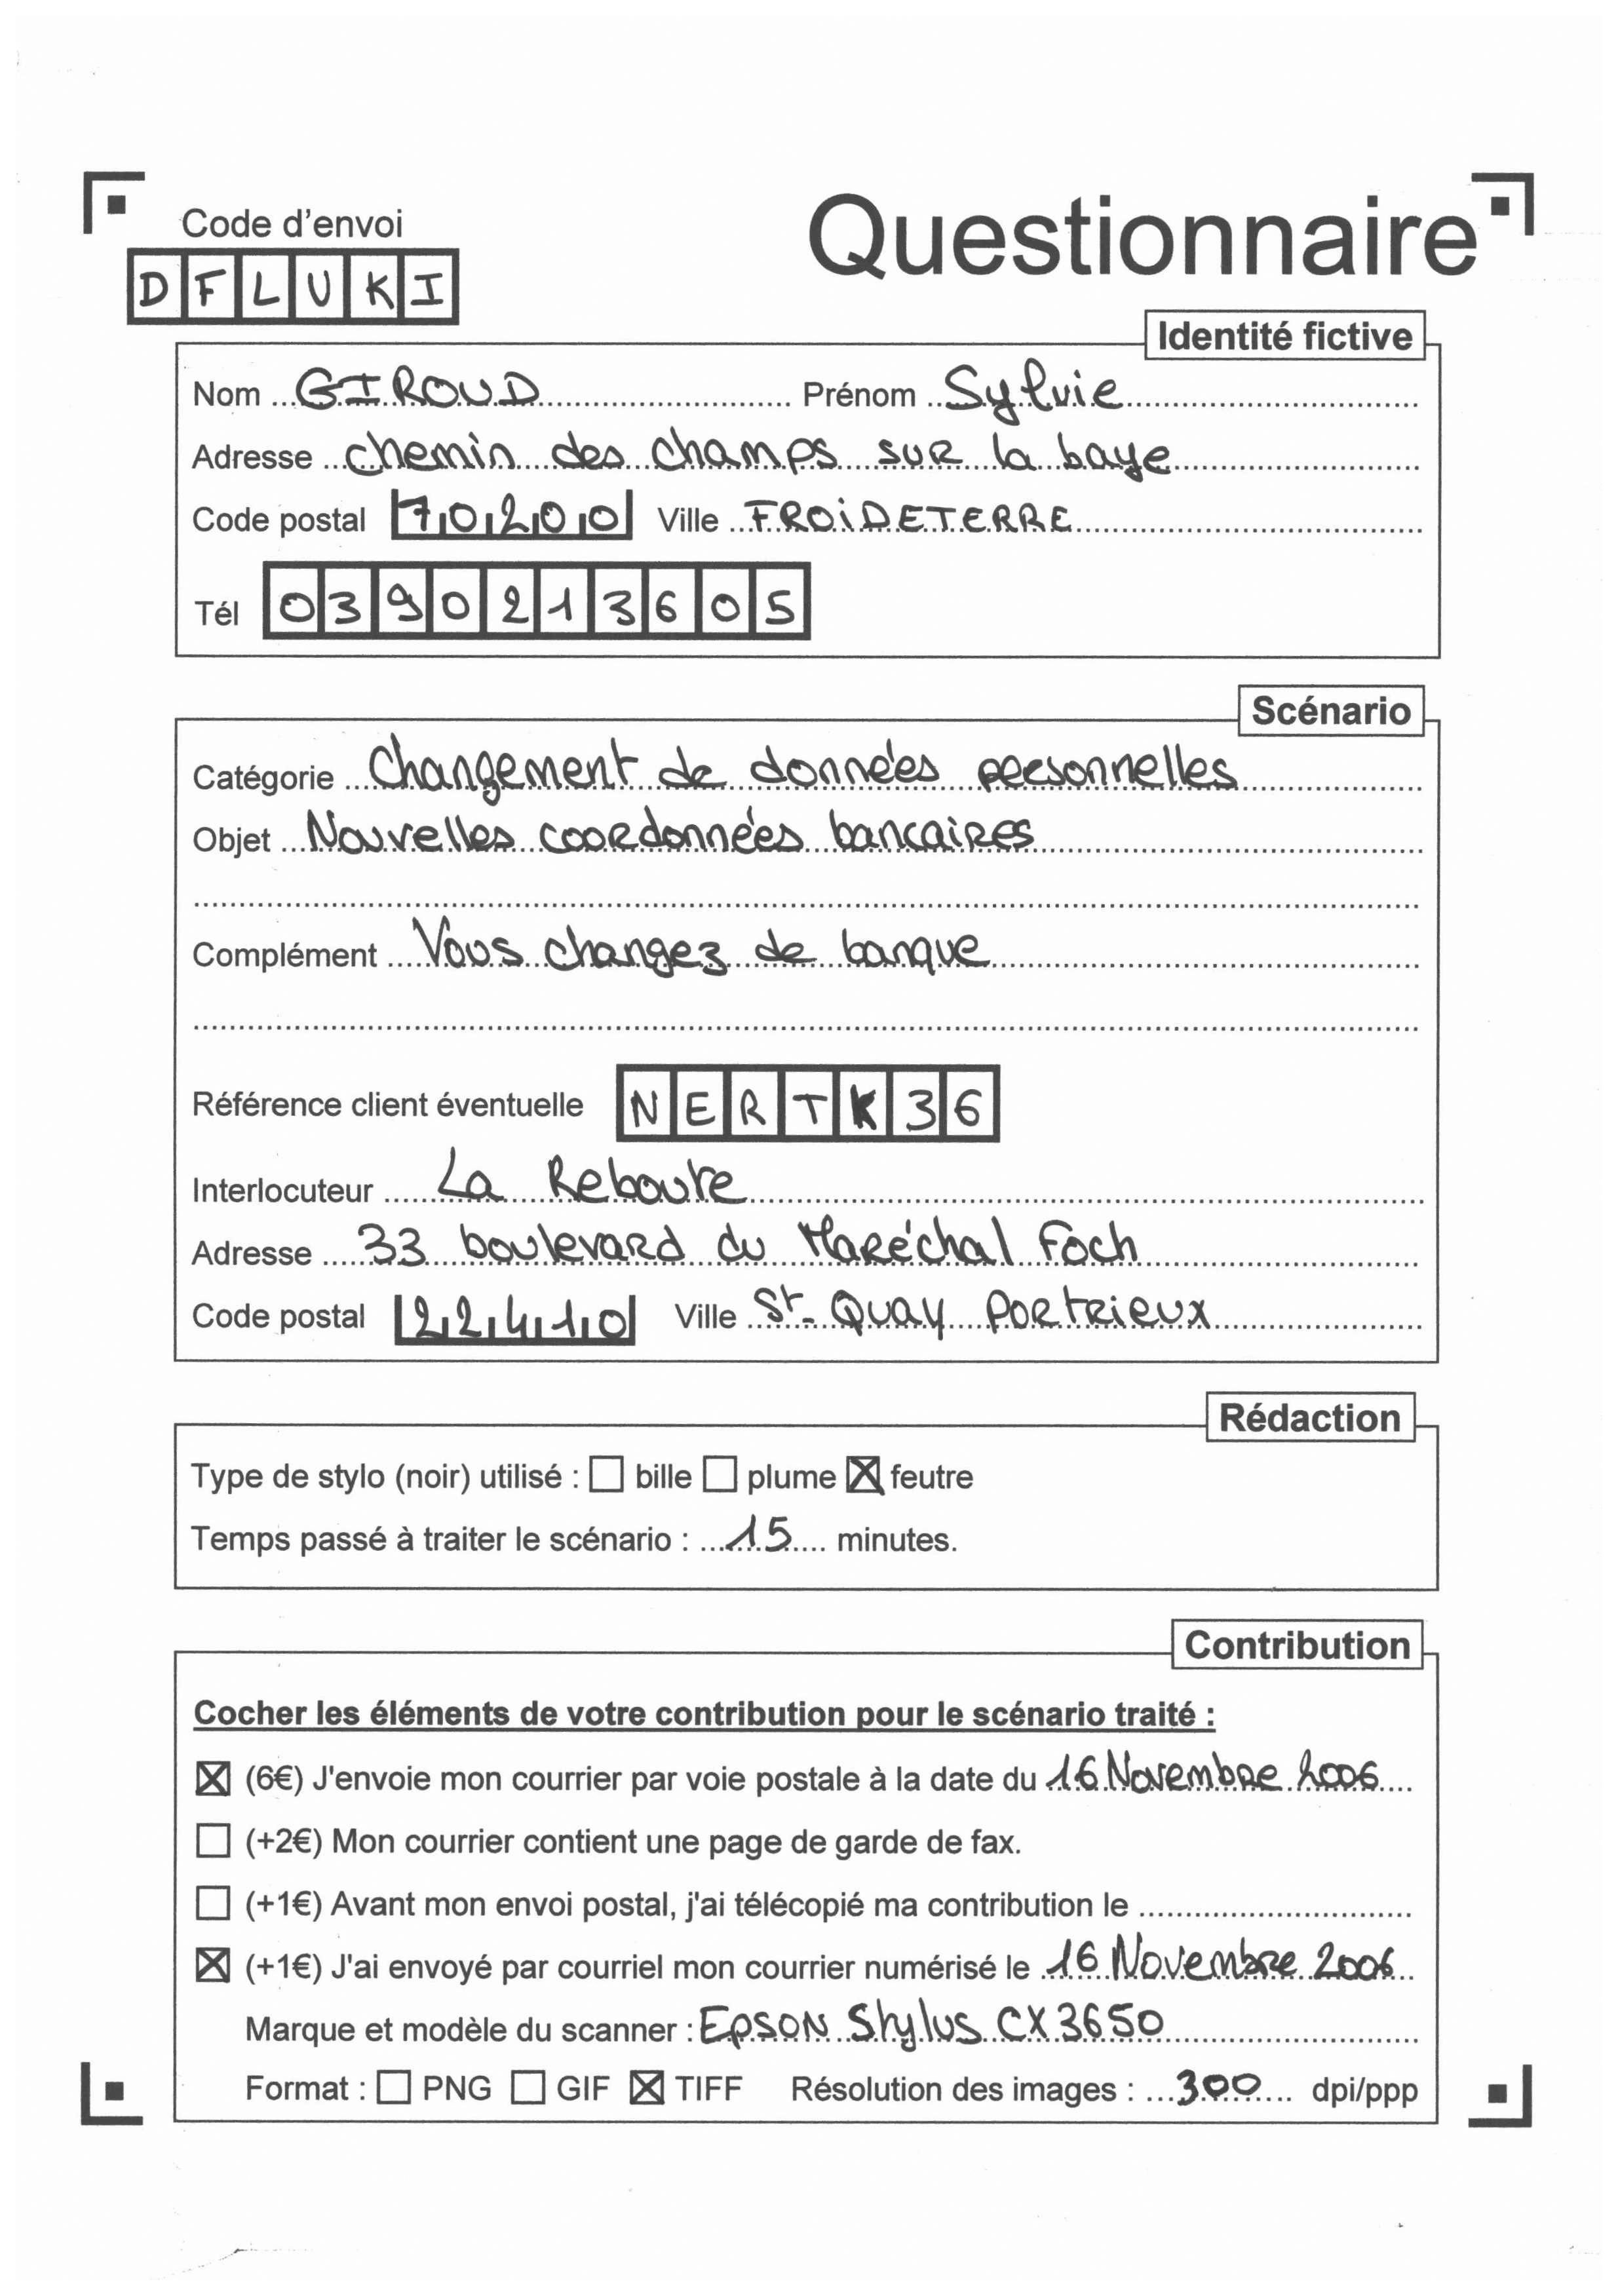 Questionnaire
Code d'envoi
DFLUKI
Identité fictive
Nom GIROUD Prénom Sylvie
Adresse chemin des champs sur la baye
Code postal 70200 Ville FROIDETERRE
Tél 0390213605
Scénario
Catégorie Changement de données personnelles
Objet Nouvelles coordonnées bancaires
Complément Vous changez de banque
Référence client éventuelle NERTK36
Interlocuteur La Reboute
Adresse 33 boulevard du Maréchal Foch
Code postal 22410 Ville St-Quay Portrieux
Rédaction
Type de stylo (noir) utilisé : ☐ bille ☐ plume ☒ feutre
Temps passé à traiter le scénario : 15 minutes.
Contribution
Cocher les éléments de votre contribution pour le scénario traité :
☒ (6€) J'envoie mon courrier par voie postale à la date du 16 Novembre 2006
☐ (+2€) Mon courrier contient une page de garde de fax.
☐ (+1€) Avant mon envoi postal, j'ai télécopié ma contribution le
☒ (+1€) J'ai envoyé par courriel mon courrier numérisé le 16 Novembre 2006
Marque et modèle du scanner : Epson Stylus CX3650
Format : ☐ PNG ☐ GIF ☒ TIFF Résolution des images : 300 dpi/ppp